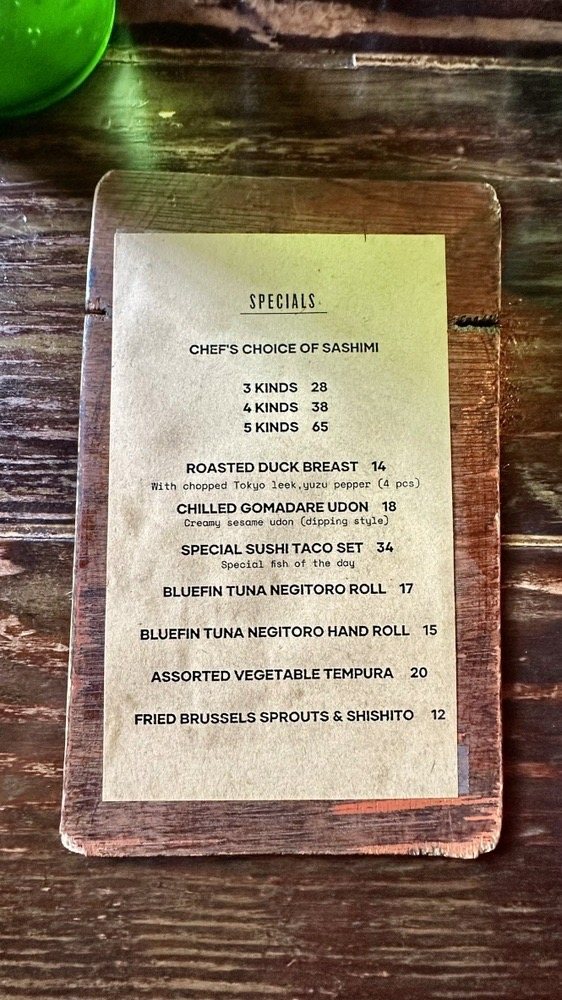 SPECIALS
CHEF'S CHOICE OF SASHIMI
3 KINDS 28
4 KINDS 38
5 KINDS 65
ROASTED DUCK BREAST 14
With chopped Tokyo leek,yuzu pepper (4 pcs)
CHILLED GOMADARE UDON 18
Creamy sesame udon (dipping style)
SPECIAL SUSHI TACO SET 34
Special fish of the day
BLUEFIN TUNA NEGITORO ROLL 17
BLUEFIN TUNA NEGITORO HAND ROLL 15
ASSORTED VEGETABLE TEMPURA 20
FRIED BRUSSELS SPROUTS & SHISHITO 12